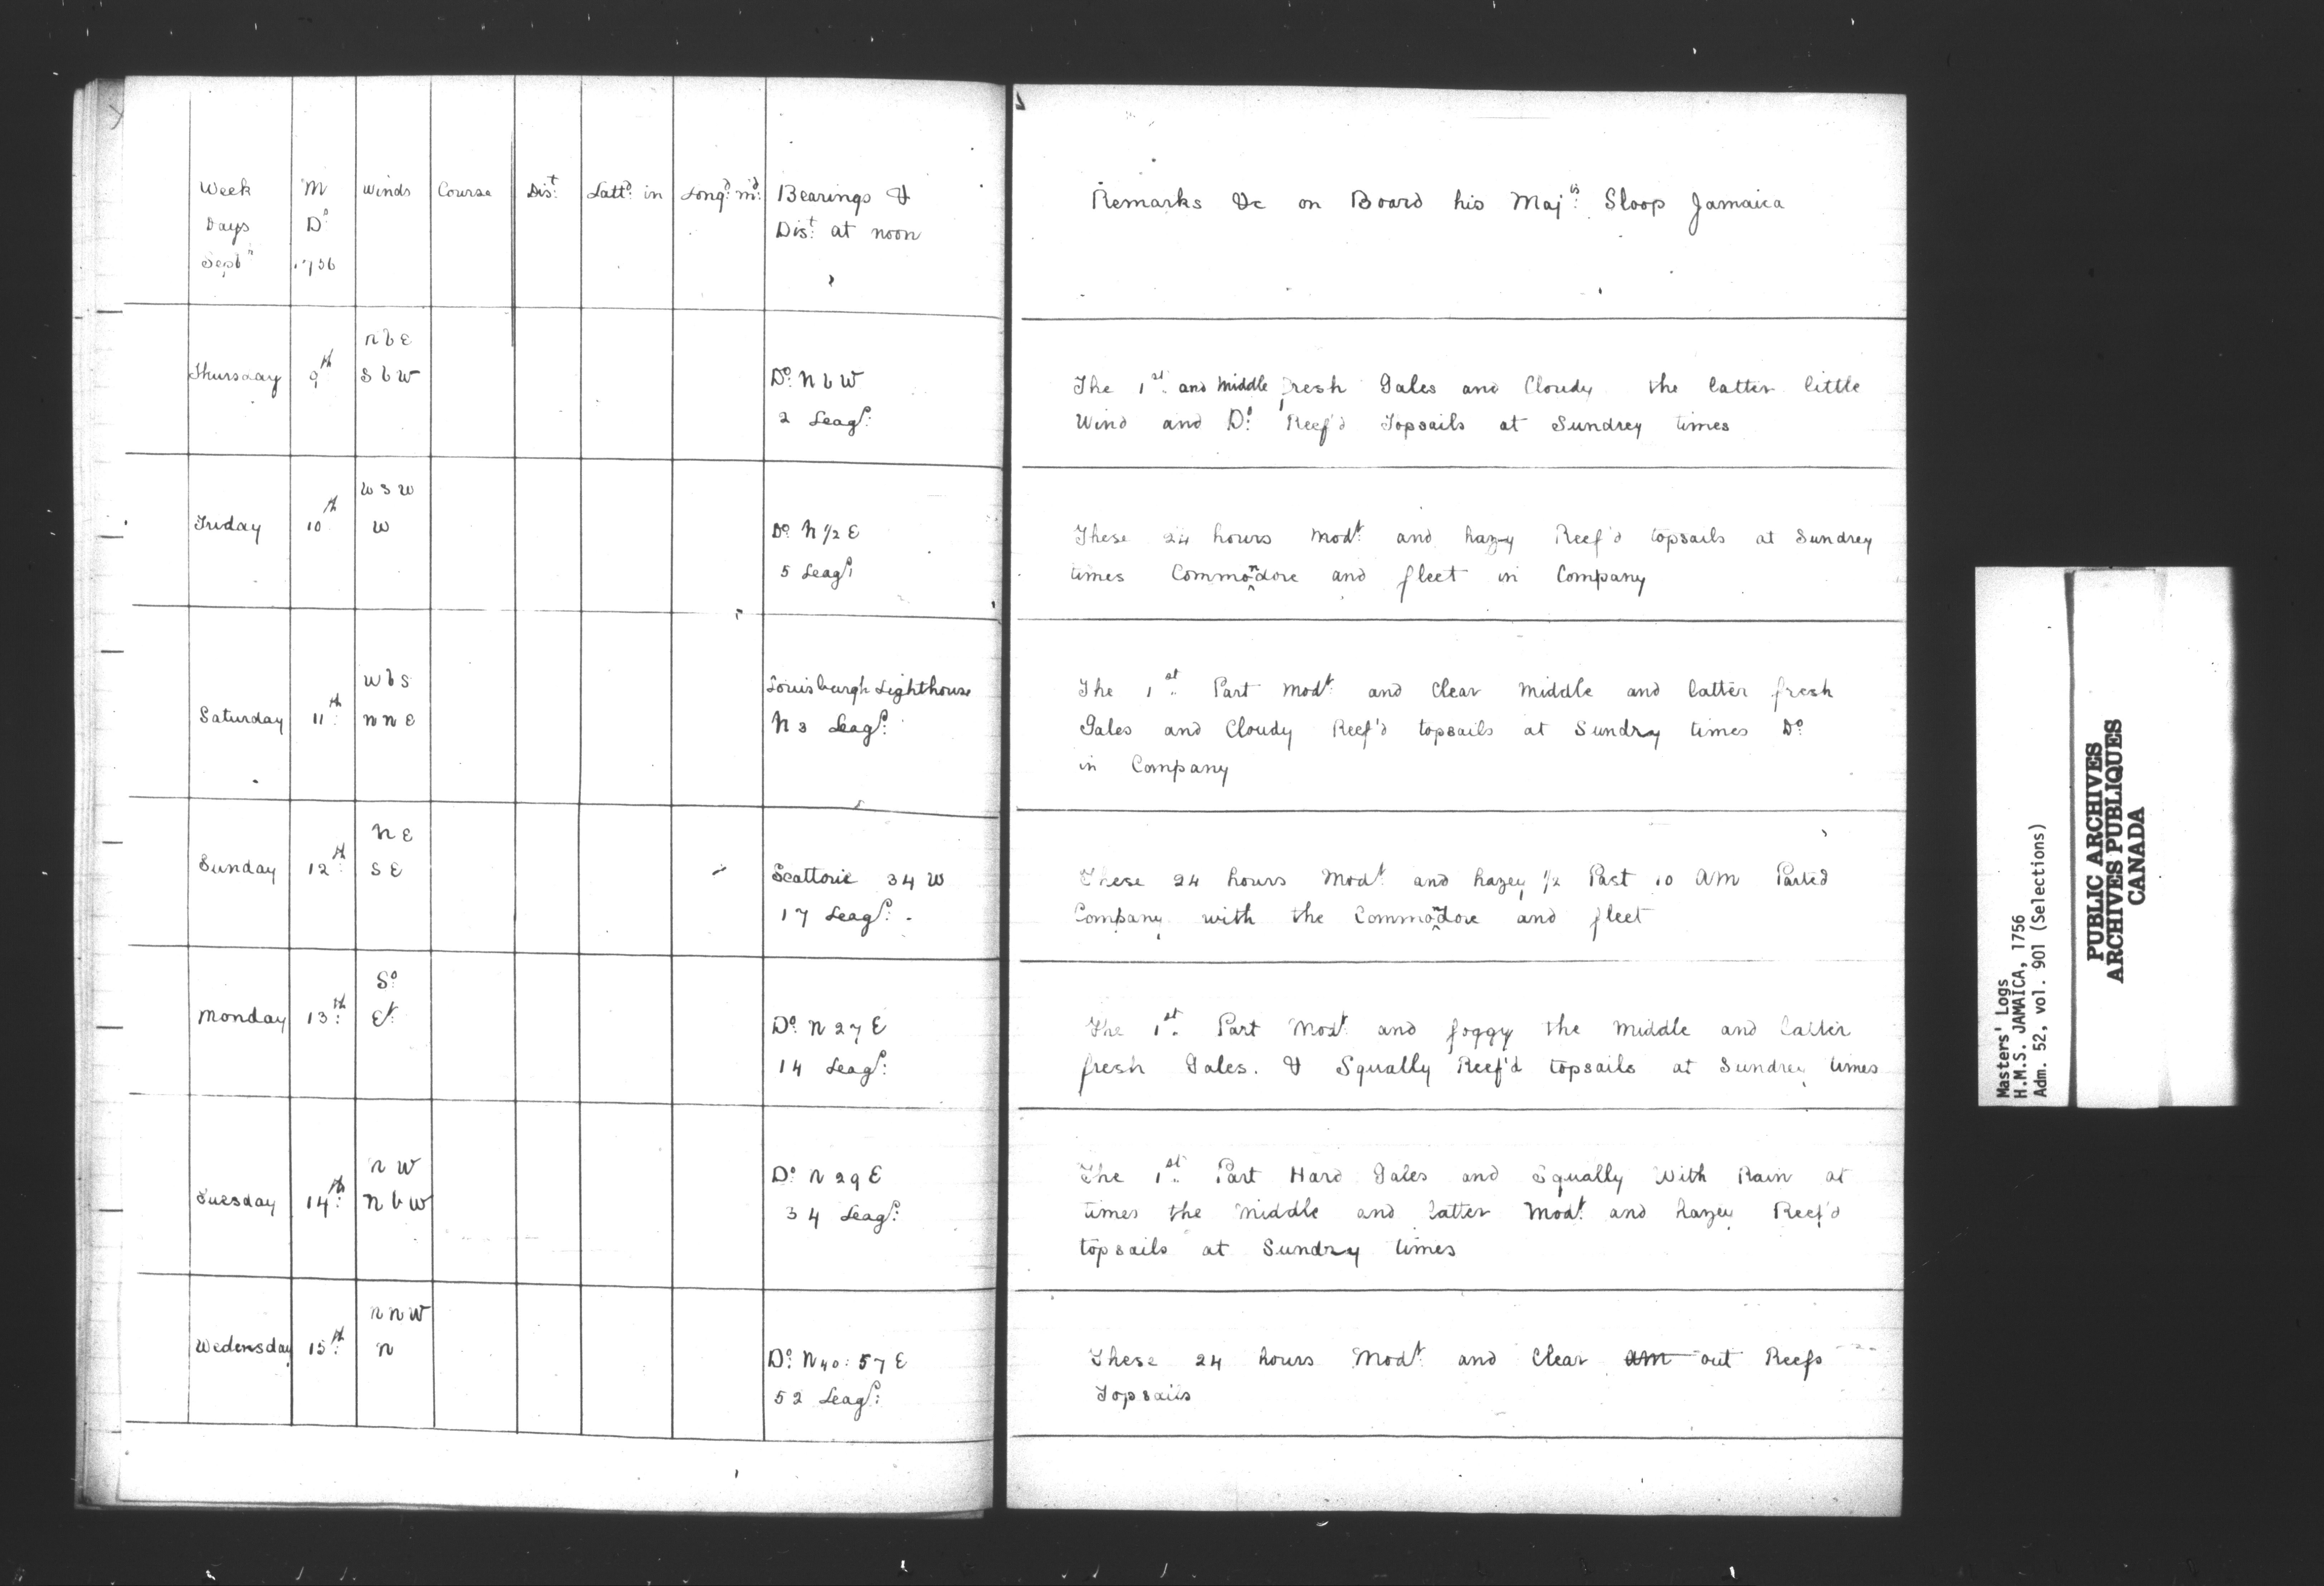 Week M Winds Course Dist: Lattd: in Longd: md: Bearings &
Days Do Dist: at noon
Septr 1756
nbE
Thursday 9th SbW Do: NbW
2 Leags:
WSW
Friday 10th W Do N 1/2 E
5 Leags:
WbS Louisburgh Lighthouse
Saturday 11th: nnE N 3 Leags:
NE
Sunday 12th: SE Scattorie 34 W
17 Leags:
So
Monday 13th: Et: Do: N 27 E
14 Leags:
nW Do N 29 E
Tuesday 14th: nbW 34 Leags:
nnW
Wedensday 15th: n Do: N 40:57 E
52 Leags:
Remarks &c on Board his Majts: Sloop Jamaica
The 1st: and middle fresh Gales and Cloudy the latter little
Wind and Do: Reef'd Topsails at Sundrey times
These 24 hours Modt: and hazy Reef'd topsails at Sundrey
times Commondore and fleet in Company
The 1st: Part Modt: and Clear Middle and latter fresh
Gales and Cloudy Reef'd topsails at Sundry times Do:
in Company
These 24 hours Modt: and hazey 1/2 Past 10 AM Parted
Company with the Commondore and fleet
The 1st: Part Modt: and foggy the middle and latter
fresh Gales. & Squally Reef'd topsails at Sundrey times
The 1st: Part Hard Gales and Squally With Rain at
times the middle and latter Modt: and hazey Reef'd
topsails at Sundry times
These 24 hours Modt: and Clear am out Reefs
Topsails
Masters' Logs
H.M.S. JAMAICA, 1756
Adm. 52, vol. 901 (Selections)
PUBLIC ARCHIVES
ARCHIVES PUBLIQUES
CANADA